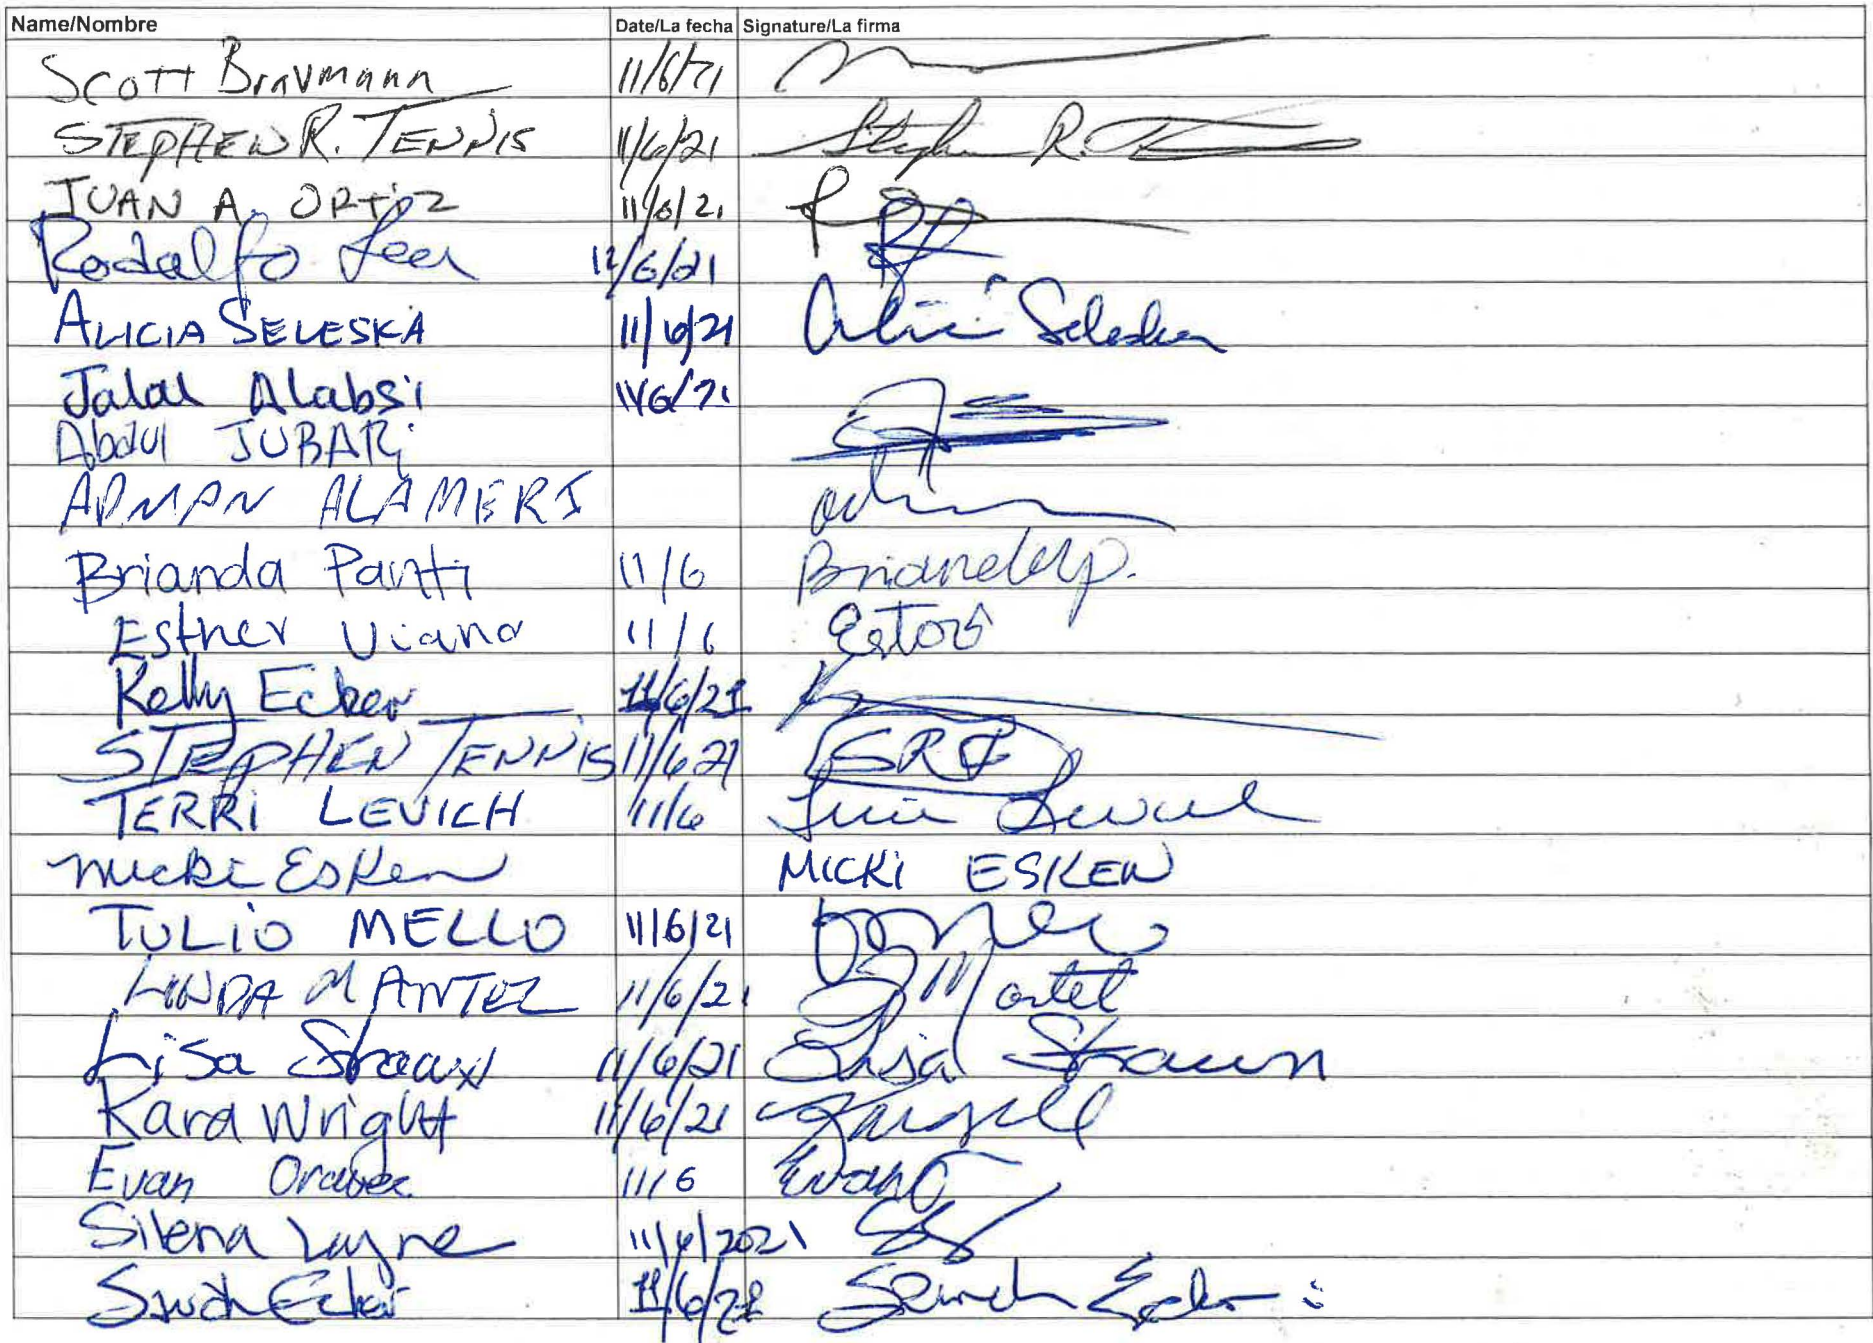 Name/Nombre Date/La fecha Signature/La firma
Scott Bravmann 11/6/21
STEPHEN R. TENNIS 11/6/21 Stephen R.
JUAN A. ORTIZ 11/6/21
Rodalfo 12/6/21
ALICIA SELESKA 11/6/21 Alicia Seleska
Jalal Alabsi 11/6/21
Abdul JUBARi
ADNAN ALAMERI
Brianda Panti 11/6 Briandap.
Esther Viana 11/6
Kelly Ecker 11/6/21
STEPHEN TENNIS 11/6/21 SRT
TERRI LEVICH 11/6 Terri Levich
Micki Esken MICKI ESKEN
TULIO MELLO 11/6/21
LINDA MANTEL 11/6/21 Mantel
Lisa 11/6/21 Lisa Straun
Kara Wright 11/6/21
Evan Oravec 11/6 Evan O
Silena Layne 11/6/2021
Sarah Ecker 11/6/21 Sarah Ecker